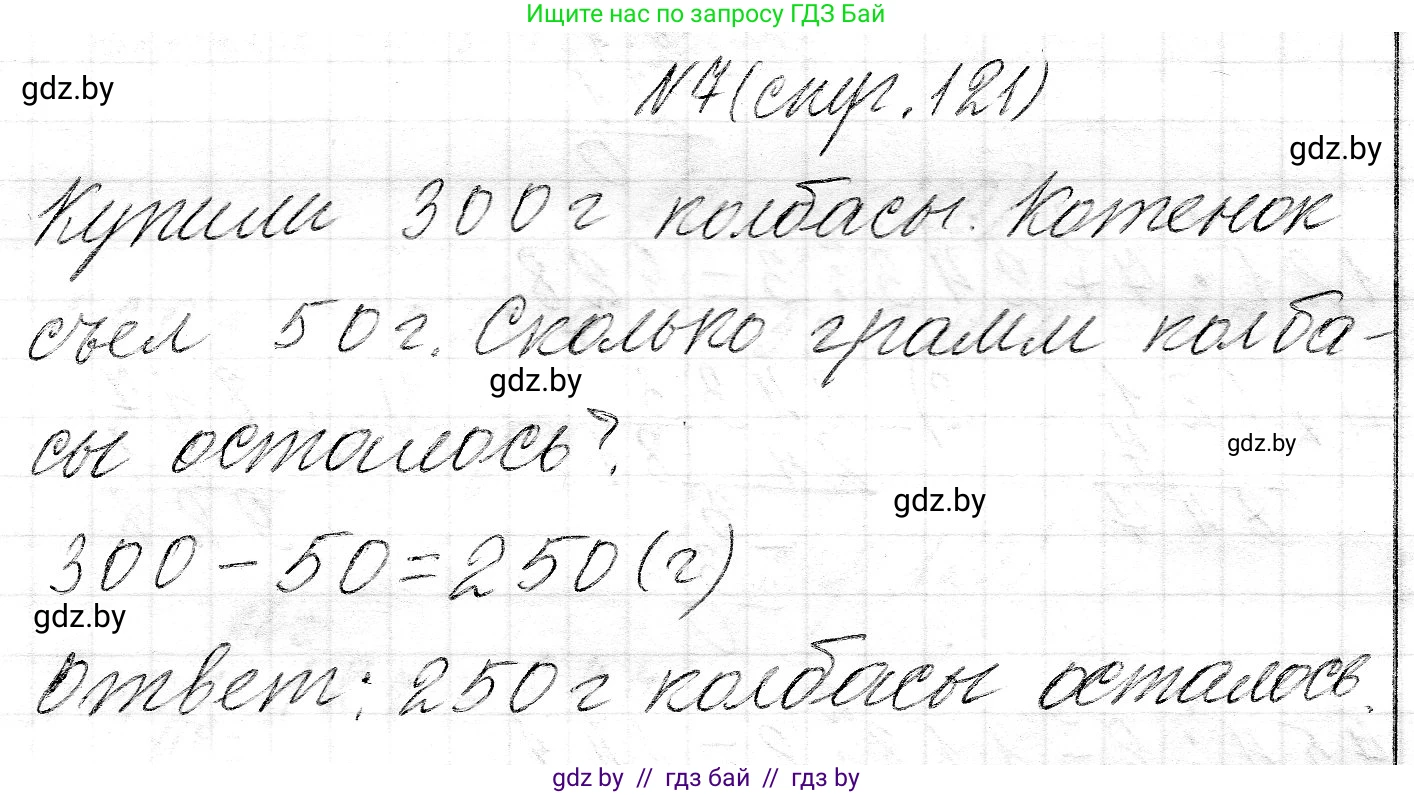 Ищите нас по запросу ГДЗ Бай
gdz.by
№7 (стр. 121)
gdz.by
Купили 300 г колбасы. Котенок
съел 50 г. Сколько грамм колба-
gdz.by
сы осталось?
gdz.by
gdz.by
300 - 50 = 250 (г)
gdz.by
Ответ: 250 г колбасы осталось.
gdz by // гдз бай // гдз by